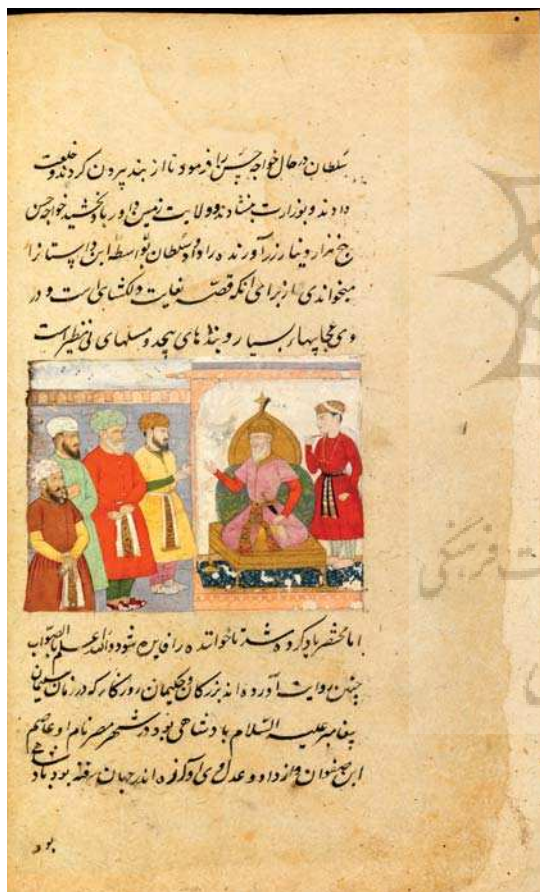 سلطان در حال خواجه حسن را فرمود تا از بند بیرون کردند و خلعت
دادند و بوزارت بنشاندند و ولایت زمین داور بدو بخشید خواجه حسن
پنج هزار دینار زر آورنده را داد و سلطان بواسطه این داستانرا
میخواندی از برای انکه قصه بغایت دلکشای است و در
وی عجایبهاء بسیار و پندهای بیحد و مسلهای بی نظیر است
اما مختصر یاد کرده شد تا خواننده را فایده شود والله اعلم بالصواب
چنین روایت آورده اند بزرکان و حکیمان روزکار که در زمان سلیمان
پیغامبر علیه السلام بادشاهی بود در شهر مصر نام او عاصم
ابن صفوان و از داد و عدل وی اوازه اندر جهان رفته بود
بود